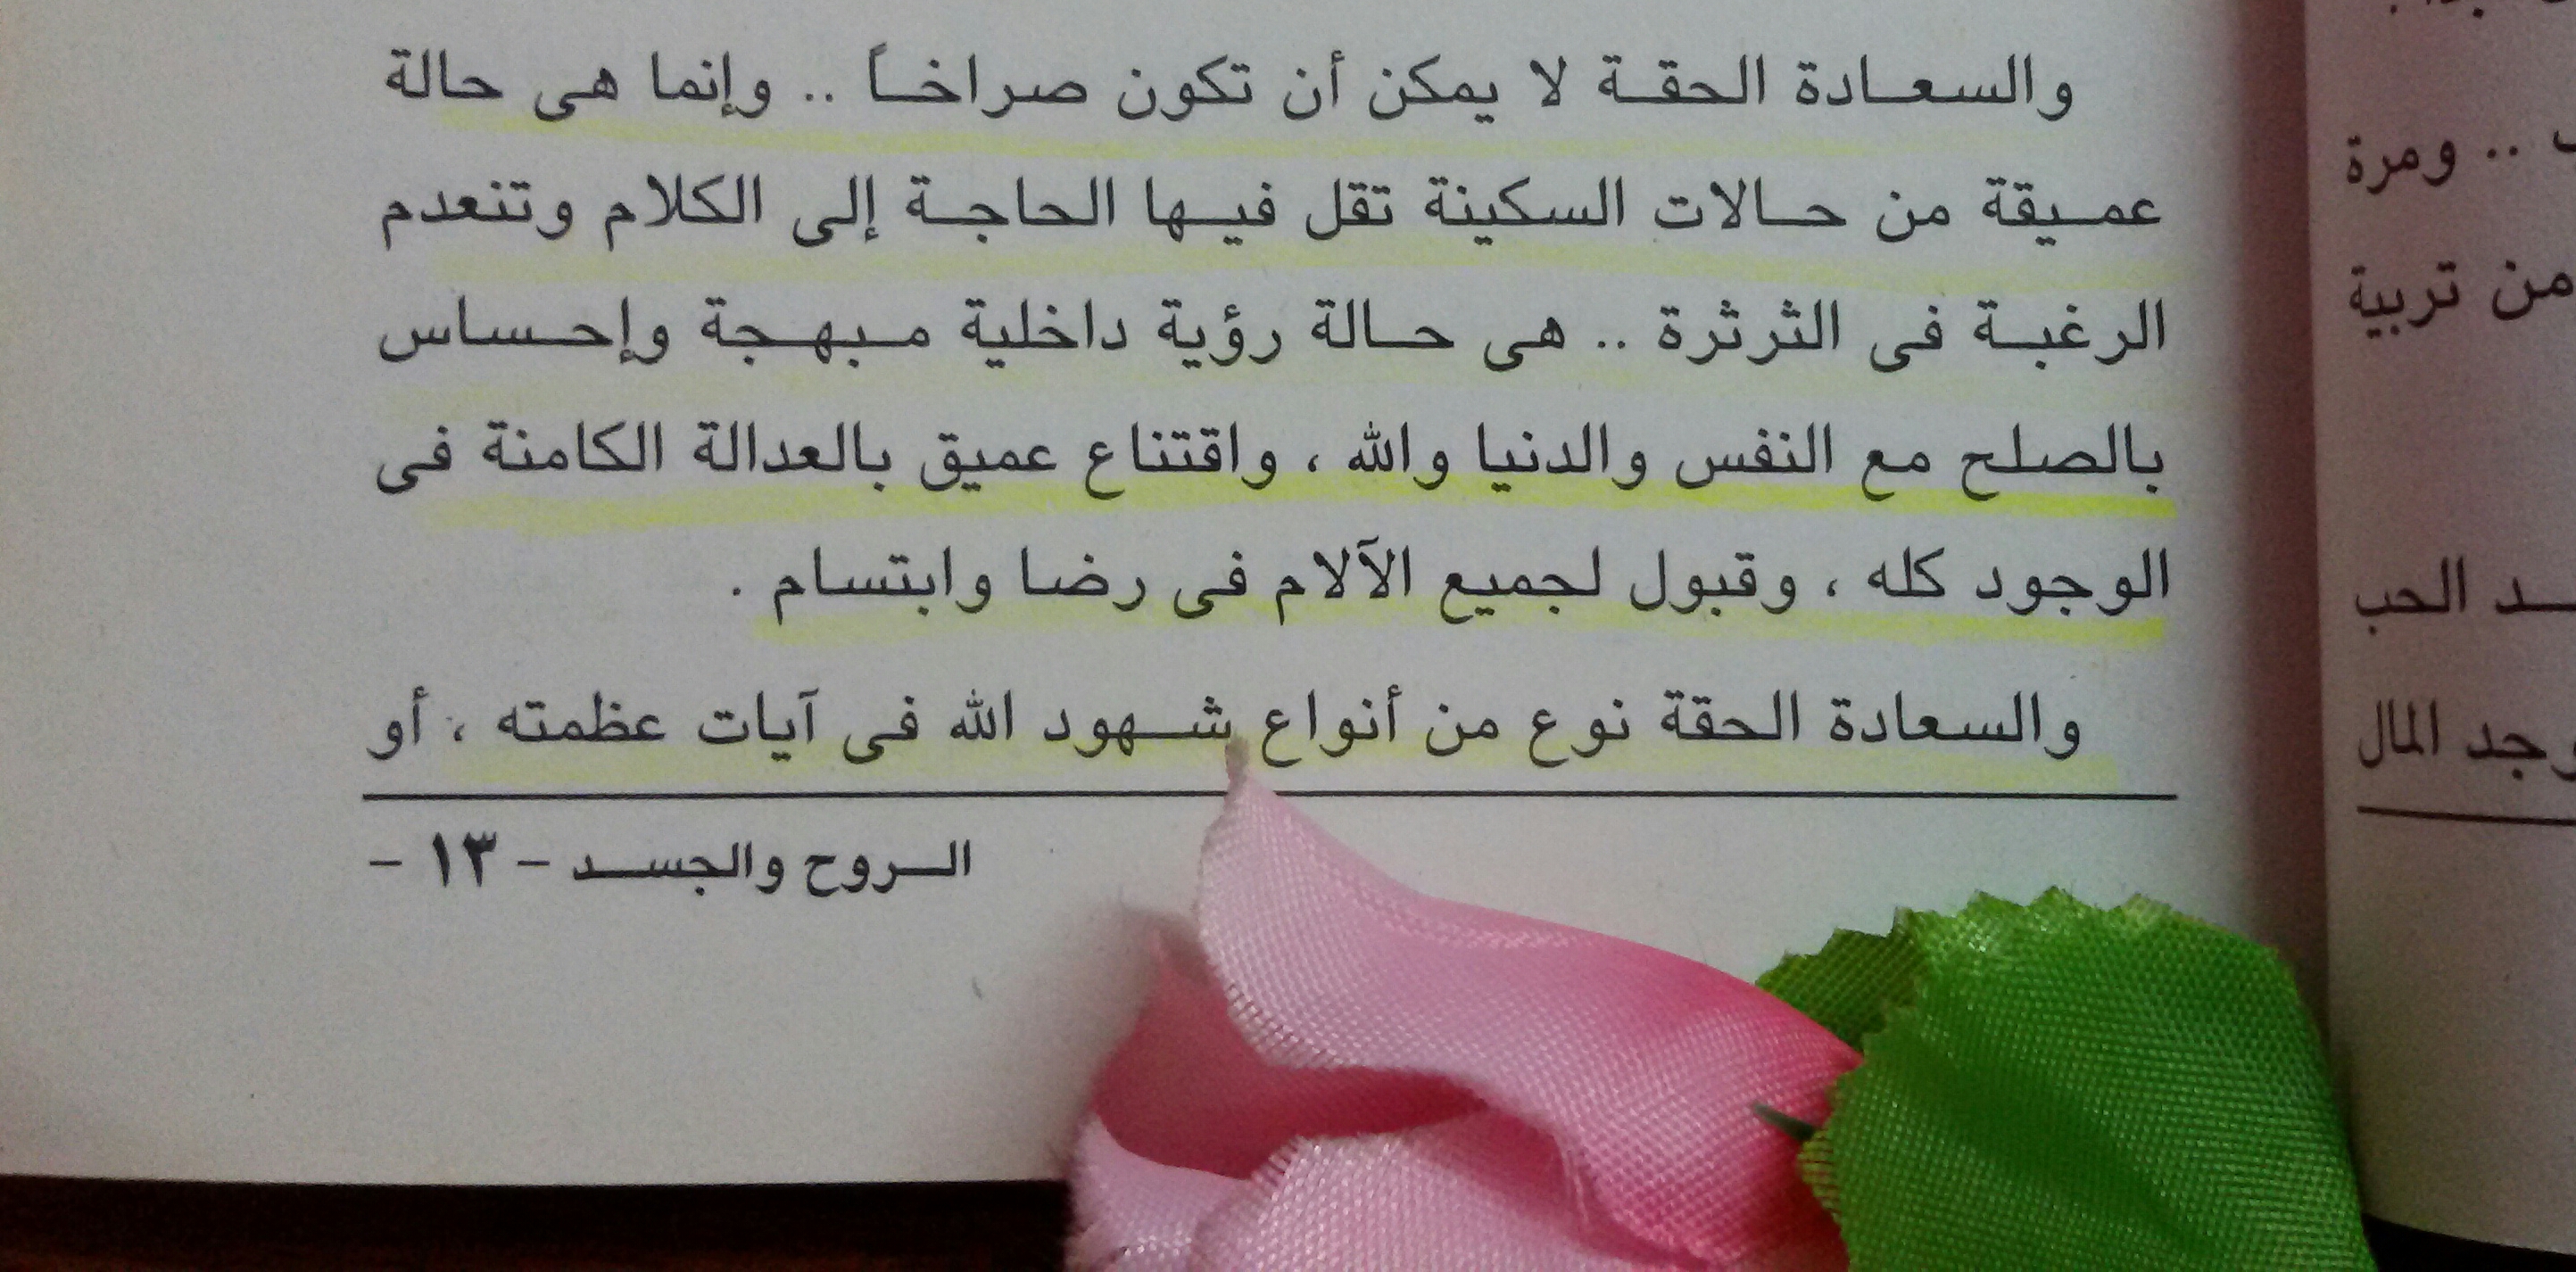 والسعادة الحقة لا يمكن أن تكون صراخاً .. وإنما هى حالة
عميقة من حالات السكينة تقل فيها الحاجة إلى الكلام وتنعدم
الرغبة فى الثرثرة .. هى حالة رؤية داخلية مبهجة وإحساس
بالصلح مع النفس والدنيا والله ، واقتناع عميق بالعدالة الكامنة فى
الوجود كله ، وقبول لجميع الآلام فى رضا وابتسام .
والسعادة الحقة نوع من أنواع شهود الله فى آيات عظمته ، أو
الروح والجسد - ١٣ -
.. ومرة
من تربية
الحب
المال